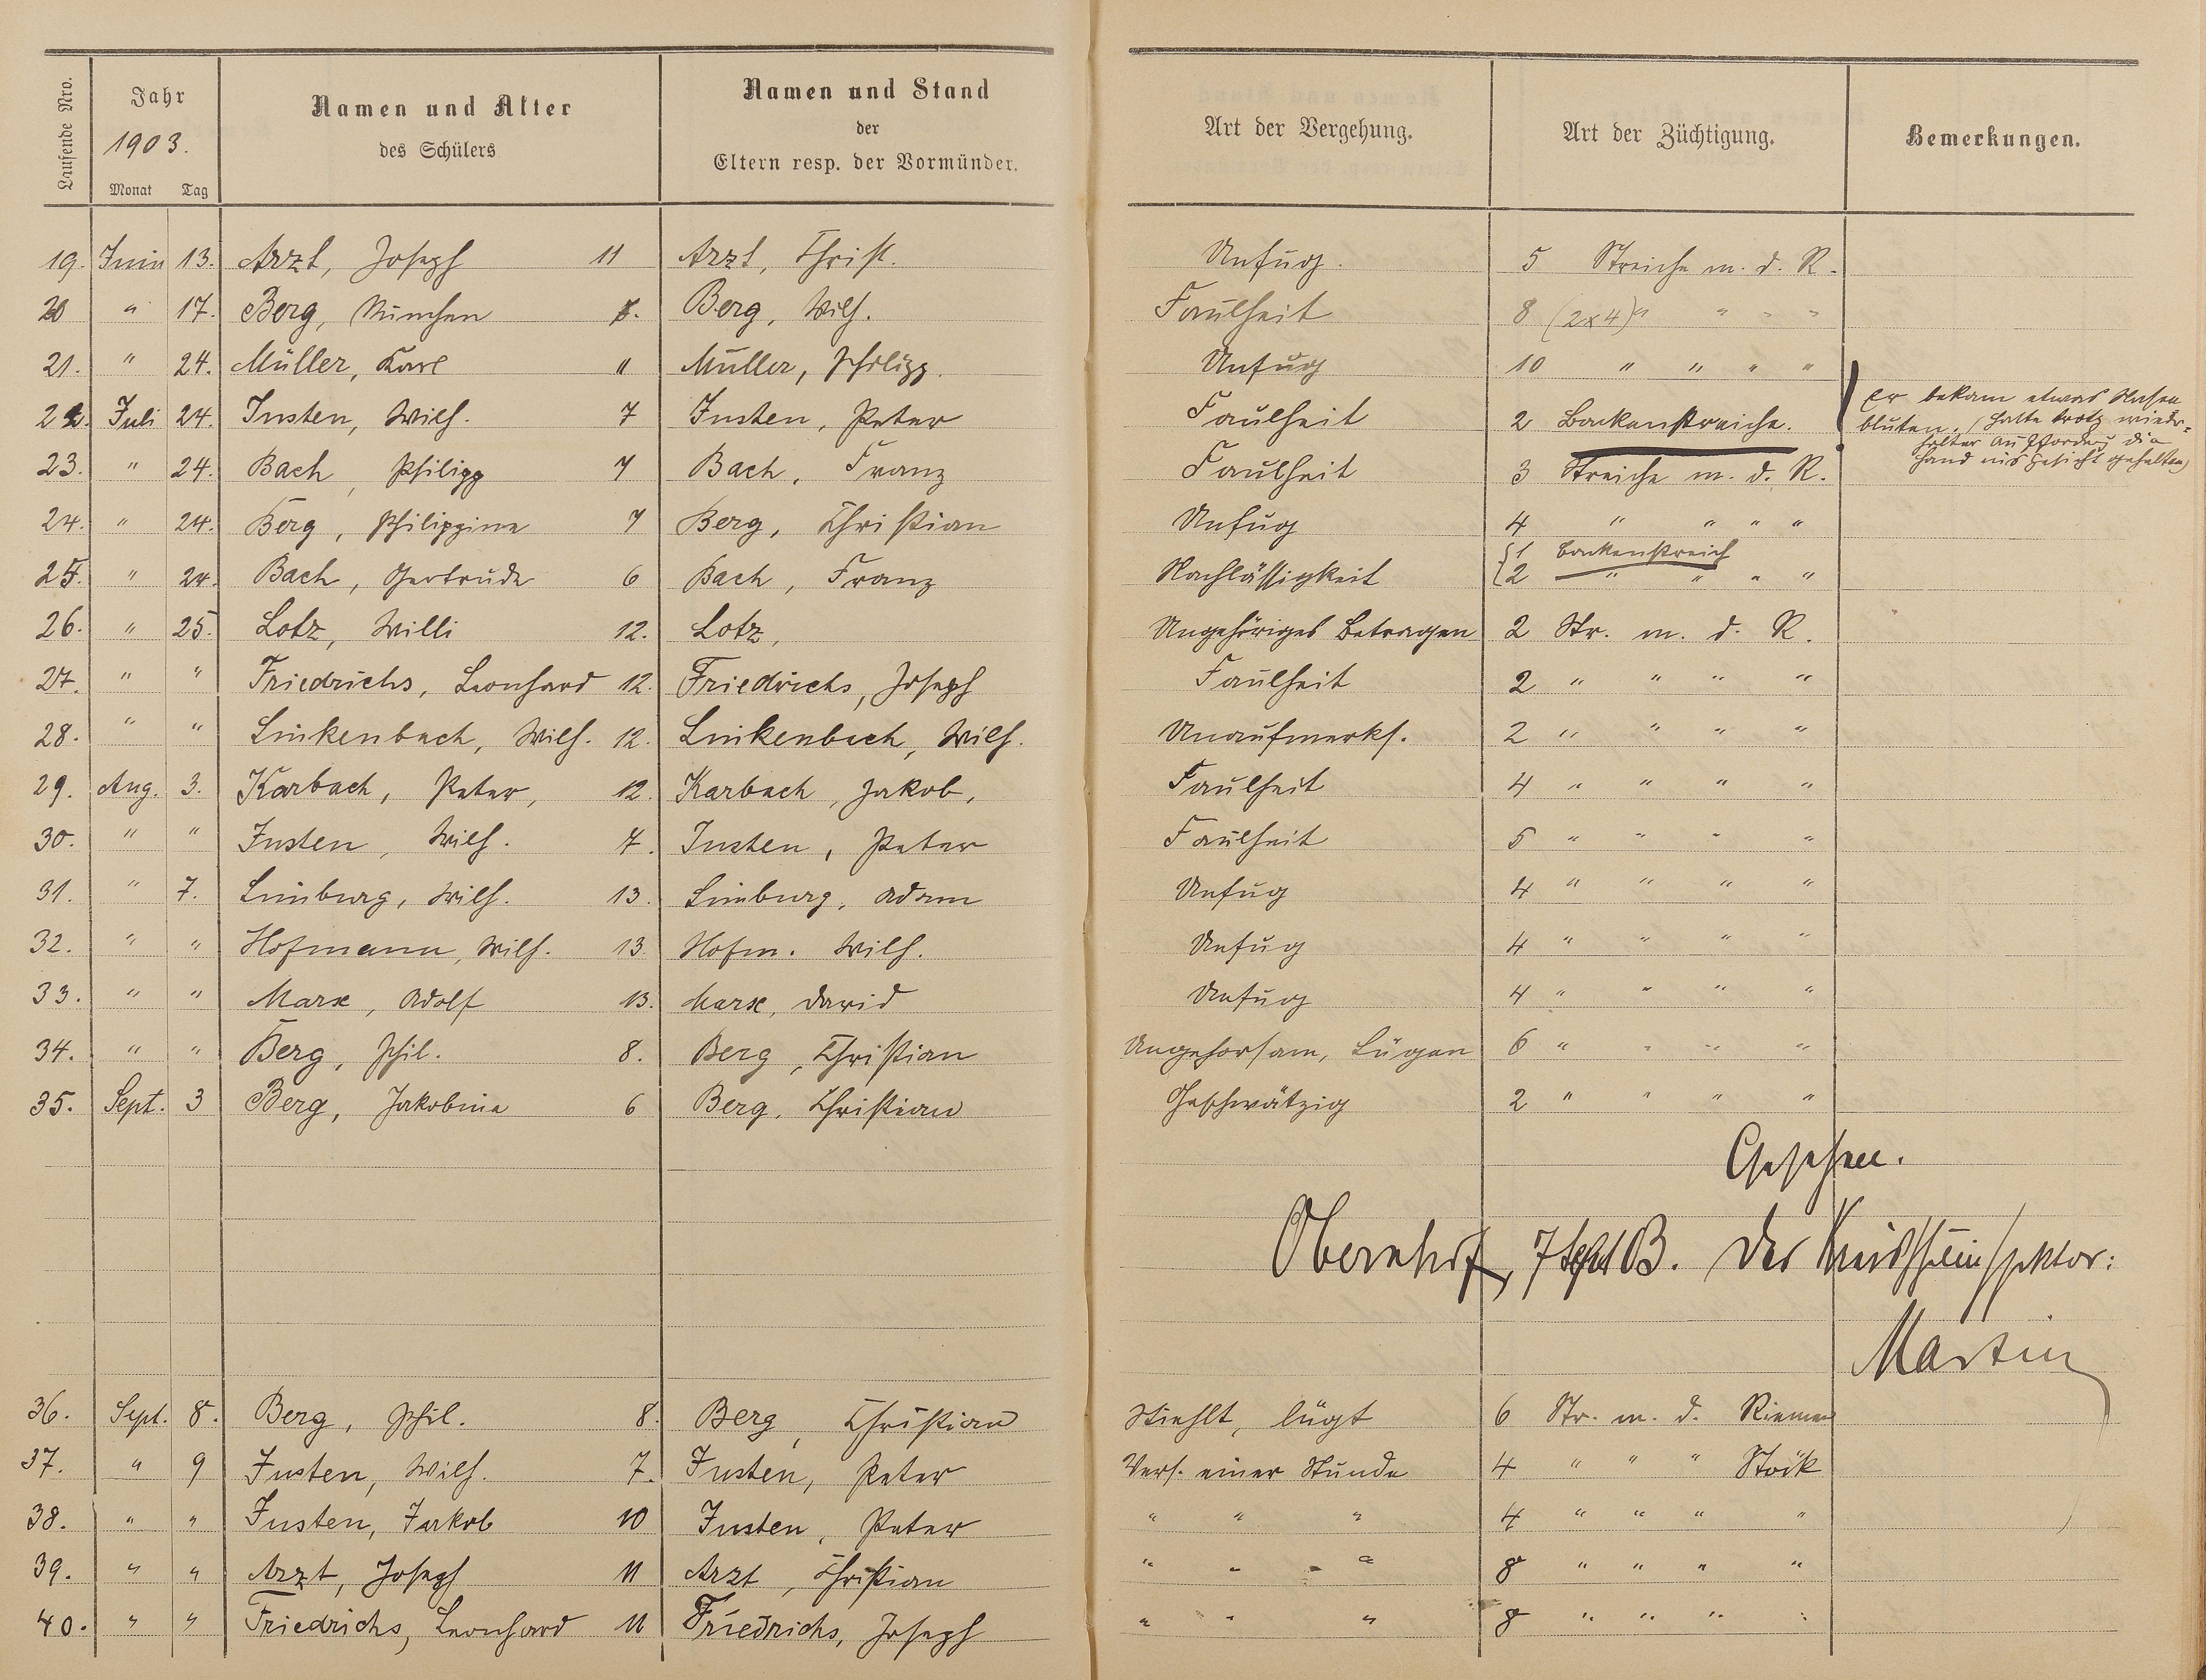 Laufende Nro.
Jahr
1903.
Monat Tag
Namen und Alter
des Schülers
Namen und Stand
der
Eltern resp. der Vormünder.
Art der Vergehung.
Art der Züchtigung.
Bemerkungen.
19. Juni 13. Arzt, Joseph 11 Arzt, Christ. Unfug. 5 Streiche m. d. R.
20 " 17. Berg, 8. Berg, Wilh. Faulheit 8 (2x4) " " " "
21. " 24. Müller, Karl " Müller, Philipp. Unfug 10 " " " "
22. Juli 24. Justen, Wilh. 7 Justen, Peter Faulheit 2 Backenstreiche. Er bekam etwas Nasen
bluten. (hatte trotz wieder=
holter Aufforderg die
Hand ins Gesicht gehalten)
23. " 24. Bach, Philipp 7 Bach, Franz Faulheit 3 Streiche m. d. R.
24. " 24. Berg, Philippine 7 Berg, Christian Unfug 4 " " " "
25. " 24. Bach, Gertrude 6 Bach, Franz Nachlässigkeit { 1 Backenstreich
2 " " " "
26. " 25. Lotz, Willi 12. Lotz, Ungehöriges Betragen 2 Str. m. d. R.
27. " " Friedrichs, Leonhard 12. Friedrichs, Joseph Faulheit 2 " " " "
28. " " Linkenbach, Wilh. 12. Linkenbach, Wilh. Unaufmerks. 2 " " " "
29. Aug. 3. Karbach, Peter, 12. Karbach, Jakob, Faulheit 4 " " " "
30. " " Justen, Wilh. 7. Justen, Peter Faulheit 5 " " " "
31. " 7. Limburg, Wilh. 13. Limburg, Adam Unfug 4 " " " "
32. " " Hofmann, Wilh. 13. Hofm. Wilh. Unfug 4 " " " "
33. " " Marx, Adolf 13. Marx, David Unfug 4 " " " "
34. " " Berg, Phil. 8. Berg, Christian Ungehorsam, Lügen 6 " " " "
35. Sept. 3 Berg, Jakobine 6 Berg, Christian Geschwätzig 2 " " " "
Gesehen.
Obernhof, 7 Sept 03. Der Kreisschulinspektor:
Martin
36. Sept. 8. Berg, Phil. 8. Berg, Christian Stiehlt, lügt 6 Str. m. d. Riemen
37. " 9 Justen, Wilh. 7. Justen, Peter Vers. einer Stunde 4 " " " Stock
38. " " Justen, Jakob 10 Justen, Peter " " " 4 " " " "
39. " " Arzt, Joseph 11 Arzt, Christian " " " " 8 " " " "
40. " " Friedrichs, Leonhard 11 Friedrichs, Joseph " " " 8 " " " "